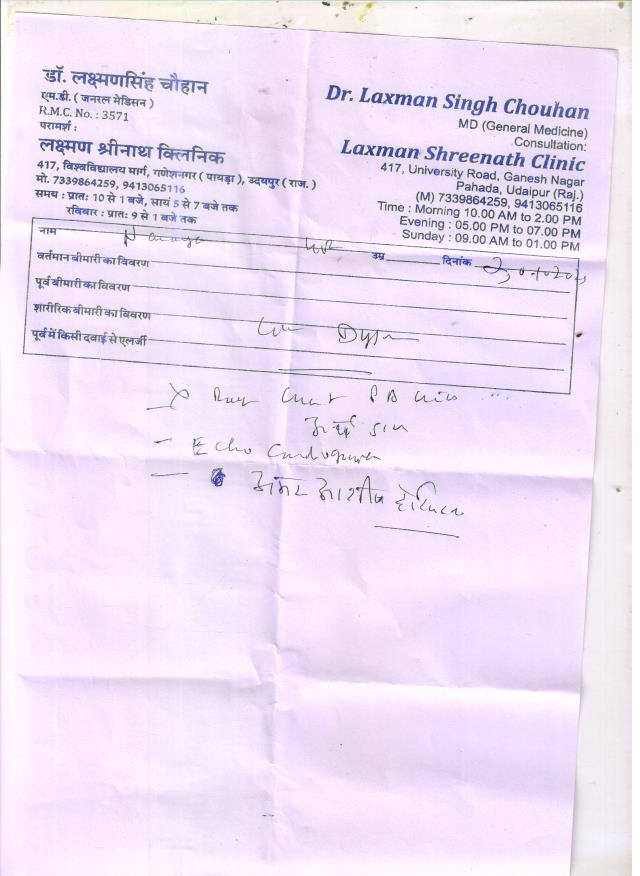 डॉ. लक्ष्मणसिंह चौहान
एम.डी. ( जनरल मेडिसन )
R.M.C. No. : 3571
परामर्श :
लक्ष्मण श्रीनाथ क्लिनिक
417, विश्वविद्यालय मार्ग, गणेशनगर ( पायड़ा ), उदयपुर ( राज. )
मो. 7339864259, 9413065116
समय : प्रातः 10 से 1 बजे, सायं 5 से 7 बजे तक
रविवार : प्रातः 9 से 1 बजे तक
Dr. Laxman Singh Chouhan
MD (General Medicine)
Consultation:
Laxman Shreenath Clinic
417, University Road, Ganesh Nagar
Pahada, Udaipur (Raj.)
(M) 7339864259, 9413065116
Time : Morning 10.00 AM to 2.00 PM
Evening : 05.00 PM to 07.00 PM
Sunday : 09.00 AM to 01.00 PM
नाम
उम्र दिनांक
वर्तमान बीमारी का विवरण
पूर्व बीमारी का विवरण
शारीरिक बीमारी का विवरण
पूर्व में किसी दवाई से एलर्जी
X Ray Chest PA View
Echo Cardiogram